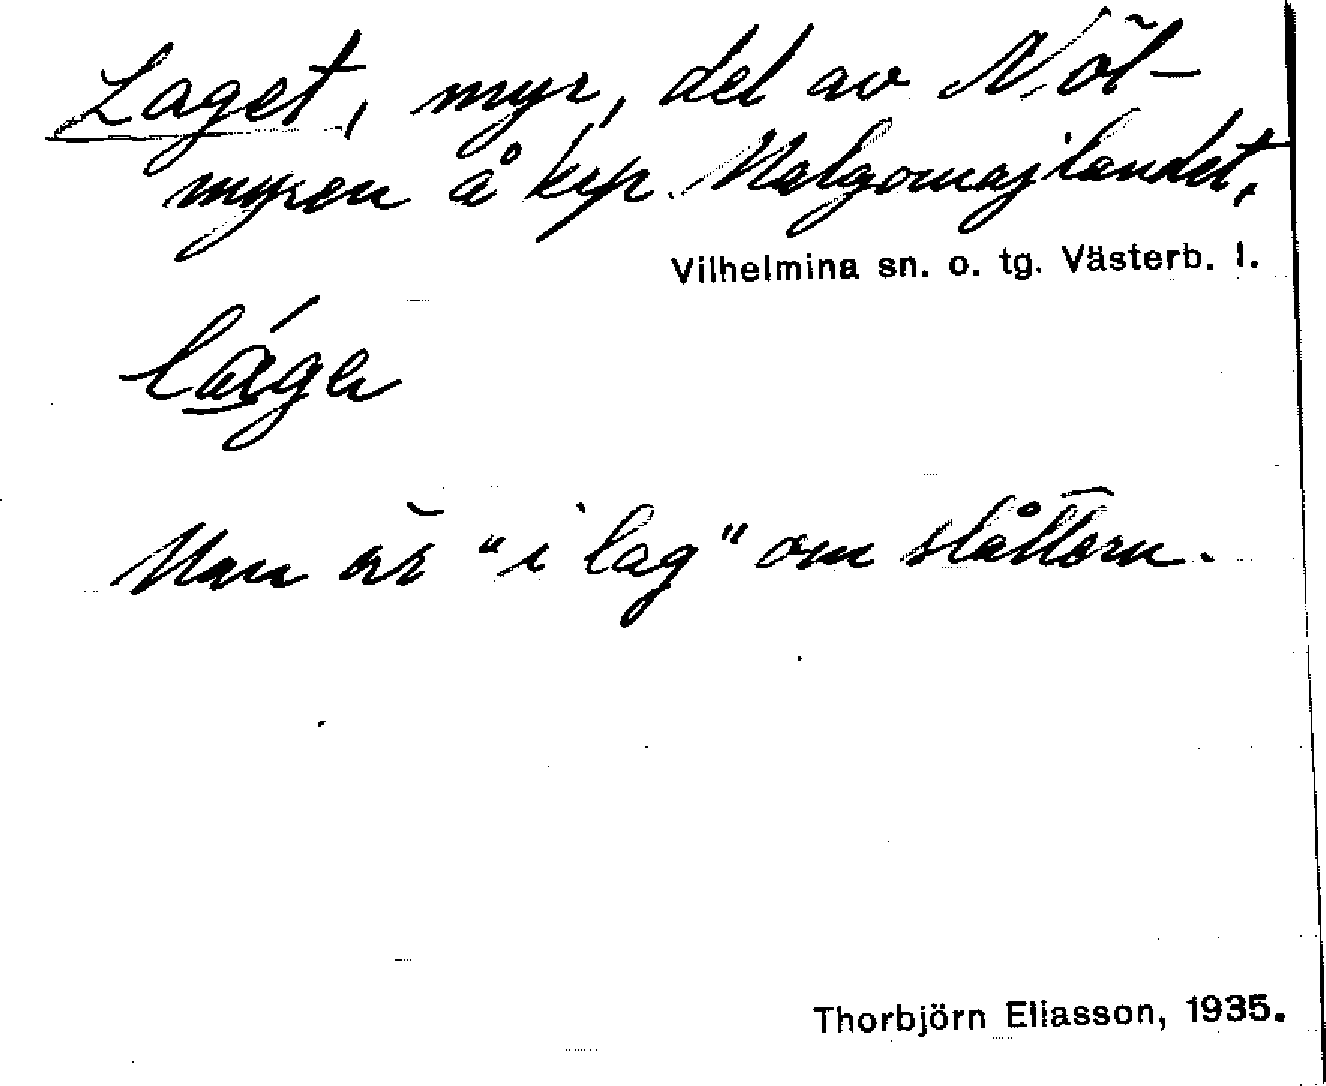 Laget, myr, del av Nöl-
myren å krp. Malgomajlandet.
Vilhelmina sn. o. tg. Västerb. l.
Man är "i lag" om slåttern.
Thorbjörn Eliasson, 1935.